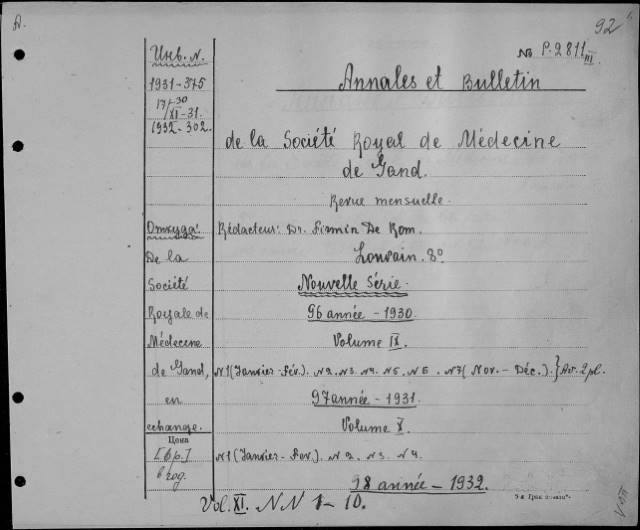 A.
92
№ P.2811 III
Инв. N.
1931-375
17/30
XI-31.
1932-302.
Annales et Bulletin
de la Société Royal de Médecine
de Gand.
Revue mensuelle.
Откуда:
De la
Société
Royale de
Médecine
de Gand,
en
echange.
Цена
[фр.]
в год.
Rédacteur: Dr. Firmin De Rom.
Louvain. 8°
Nouvelle Série.
96 année - 1930.
Volume IX.
N1 (Janvier-Fév.). N2. N3. N4. N5. N6. N7 (Nov. - Déc.). }
97 année - 1931.
Volume X.
N1 (Janvier-Fev.). N2. N3. N4.
98 année - 1932.
Vol. XI. NN 1-10.